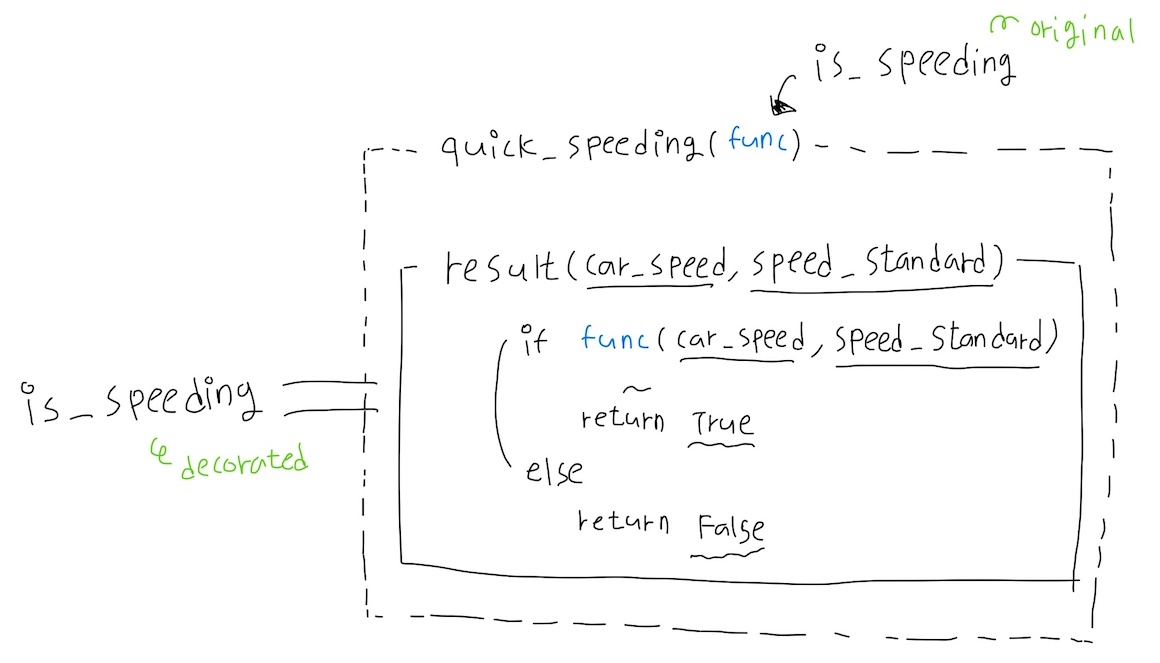 original
is_speeding
quick_speeding(func)
result(car_speed, speed_standard)
if func(car_speed, speed_standard)
return True
else
return False
is_speeding
decorated